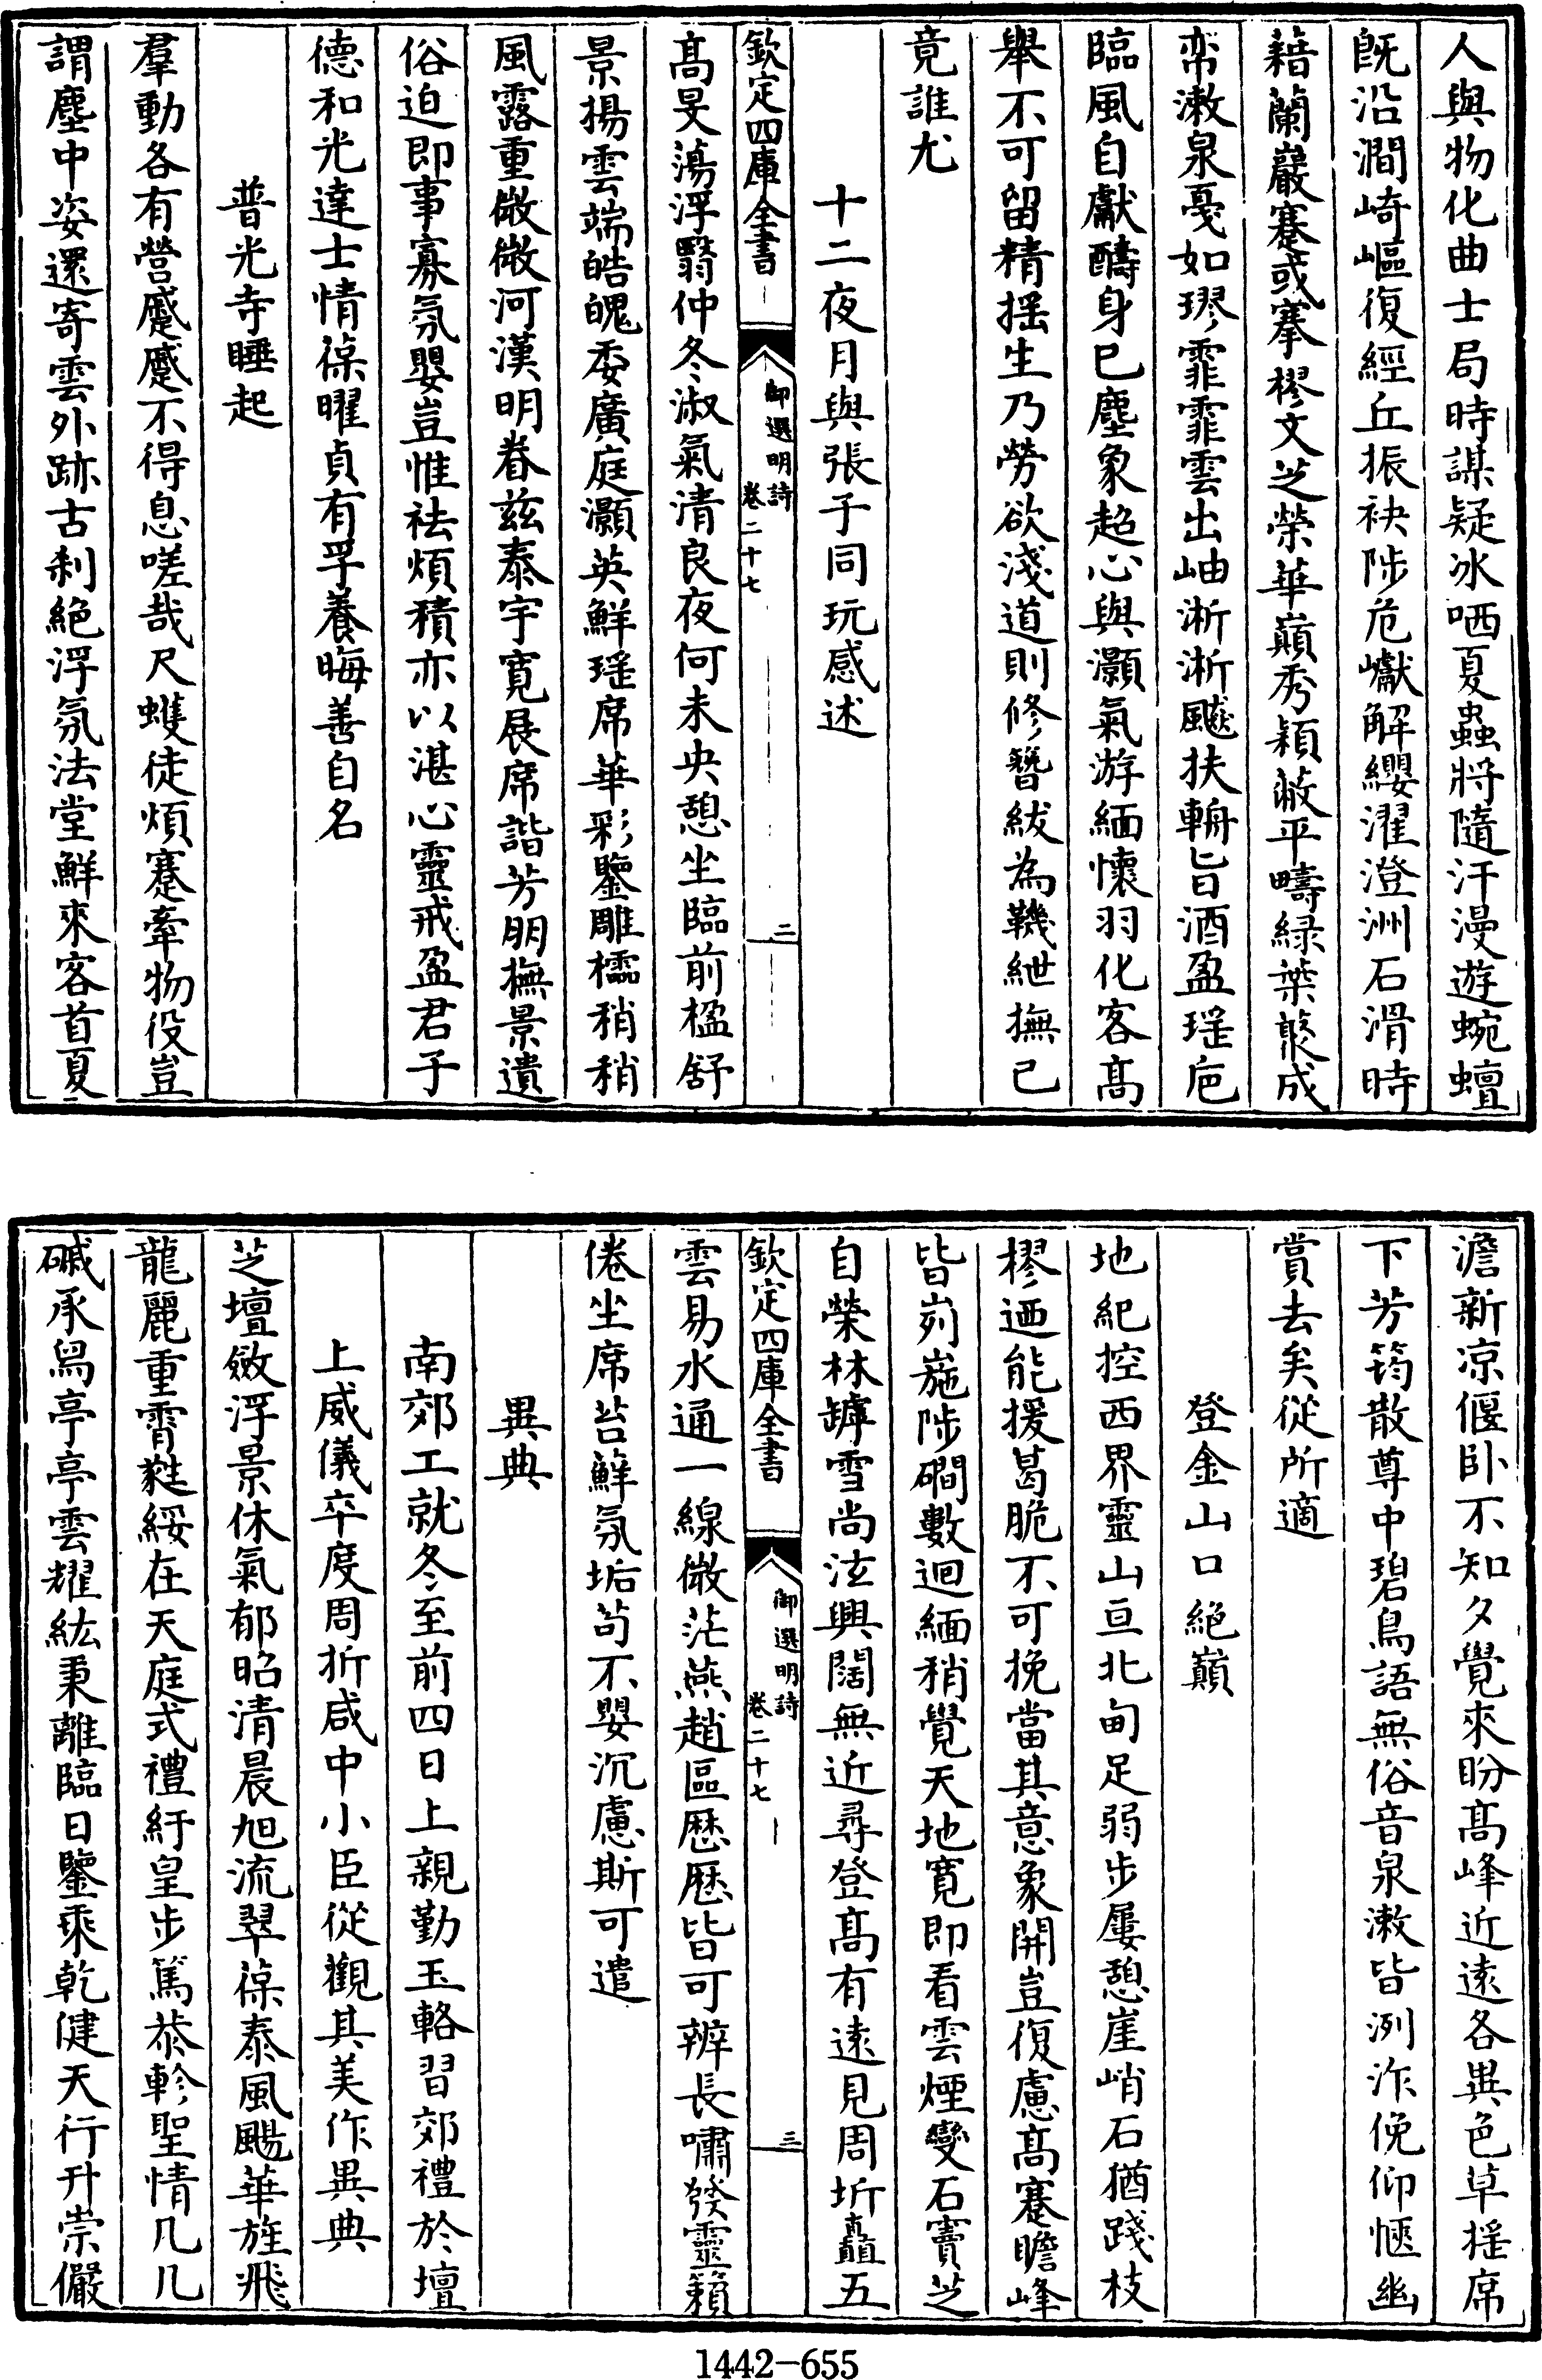 人與物化曲士局時謀疑冰哂夏蟲將隨汗漫遊蜿蟺
旣沿澗崎嶇復經丘振袂陟危巘解纓濯澄洲石滑時
藉蘭巖蹇或搴樛文芝榮華巔秀穎蔽平疇綠葉藂成
帟潄泉戞如璆霏霏雲出岫淅淅飈扶輈旨酒盈瑤巵
臨風自獻醻身已塵象超心與灝氣游緬懷羽化客髙
舉不可留精搖生乃勞欲淺道則修簪紱為鞿紲撫已
竟誰尤
十二夜月與張子同玩感述
欽定四庫全書
御選明詩
卷二十七
二
髙旻蕩浮翳仲冬淑氣清良夜何未央憩坐臨前楹舒
景揚雲端皓魄委廣庭灝英鮮瑤席華彩鑒雕櫺稍稍
風露重微微河漢明眷兹泰宇寛展席諧芳朋撫景遺
俗迫即事寡氛嬰豈惟祛煩積亦以湛心靈戒盈君子
德和光達士情葆曜貞有孚養晦善自名
普光寺睡起
羣動各有營蹙蹙不得息嗟哉尺蠖徒煩蹇牽物役豈
謂塵中姿還寄雲外跡古刹絶浮氛法堂鮮來客首夏
澹新凉偃卧不知夕覺來盼髙峰近逺各異色草搖席
下芳筠散尊中碧鳥語無俗音泉潄皆洌泎俛仰愜幽
賞去矣從所適
登金山口絶巔
地紀控西界靈山亘北甸足弱步屢憩崖峭石猶踐枝
樛迺能援葛脆不可挽當其意象開豈復慮髙蹇瞻峰
皆峛崺陟磵數迴緬稍覺天地寛即看雲煙變石竇芝
自榮林罅雪尚泫興闊無近尋登髙有逺見周圻矗五
欽定四庫全書
御選明詩
卷二十七
三
雲易水通一線微茫燕趙區厯厯皆可辨長嘯發靈籟
倦坐席苔蘚氛垢苟不嬰沉慮斯可遣
異典
南郊工就冬至前四日上親勤玉輅習郊禮於壇
上威儀卒度周折咸中小臣從觀其美作異典
芝壇斂浮景休氣郁昭清晨旭流翠葆泰風颺華旌飛
龍麗重霄蕤綏在天庭式禮紆皇步篤恭軫聖情几几
磩承舄亭亭雲耀紘秉離臨日鑒乘乾健天行升崇儼
1442-655